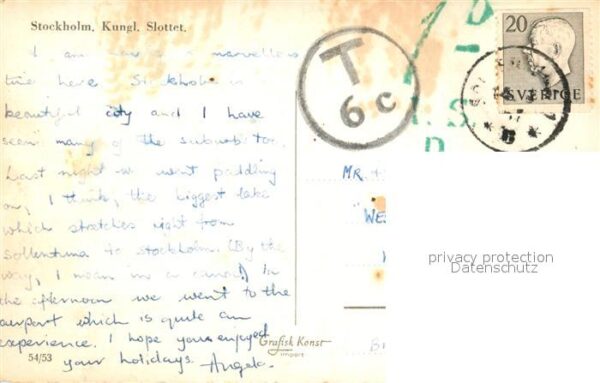 Stockholm, Kungl. Slottet.
I am having a marvellous
time here. Stockholm is a
beautiful city and I have
seen many of the suburbs too.
Last night we went paddling
on, I think, the biggest lake
which stretches right from
Sollentuna to Stockholm. (By the
way, I mean in a canoe!) In
the afternoon we went to the
airport which is quite an
experience. I hope you enjoyed
your holidays. Angela.
54/53
Grafisk Konst
import
T
6c
20
SVERIGE
MR
privacy protection
Datenschutz